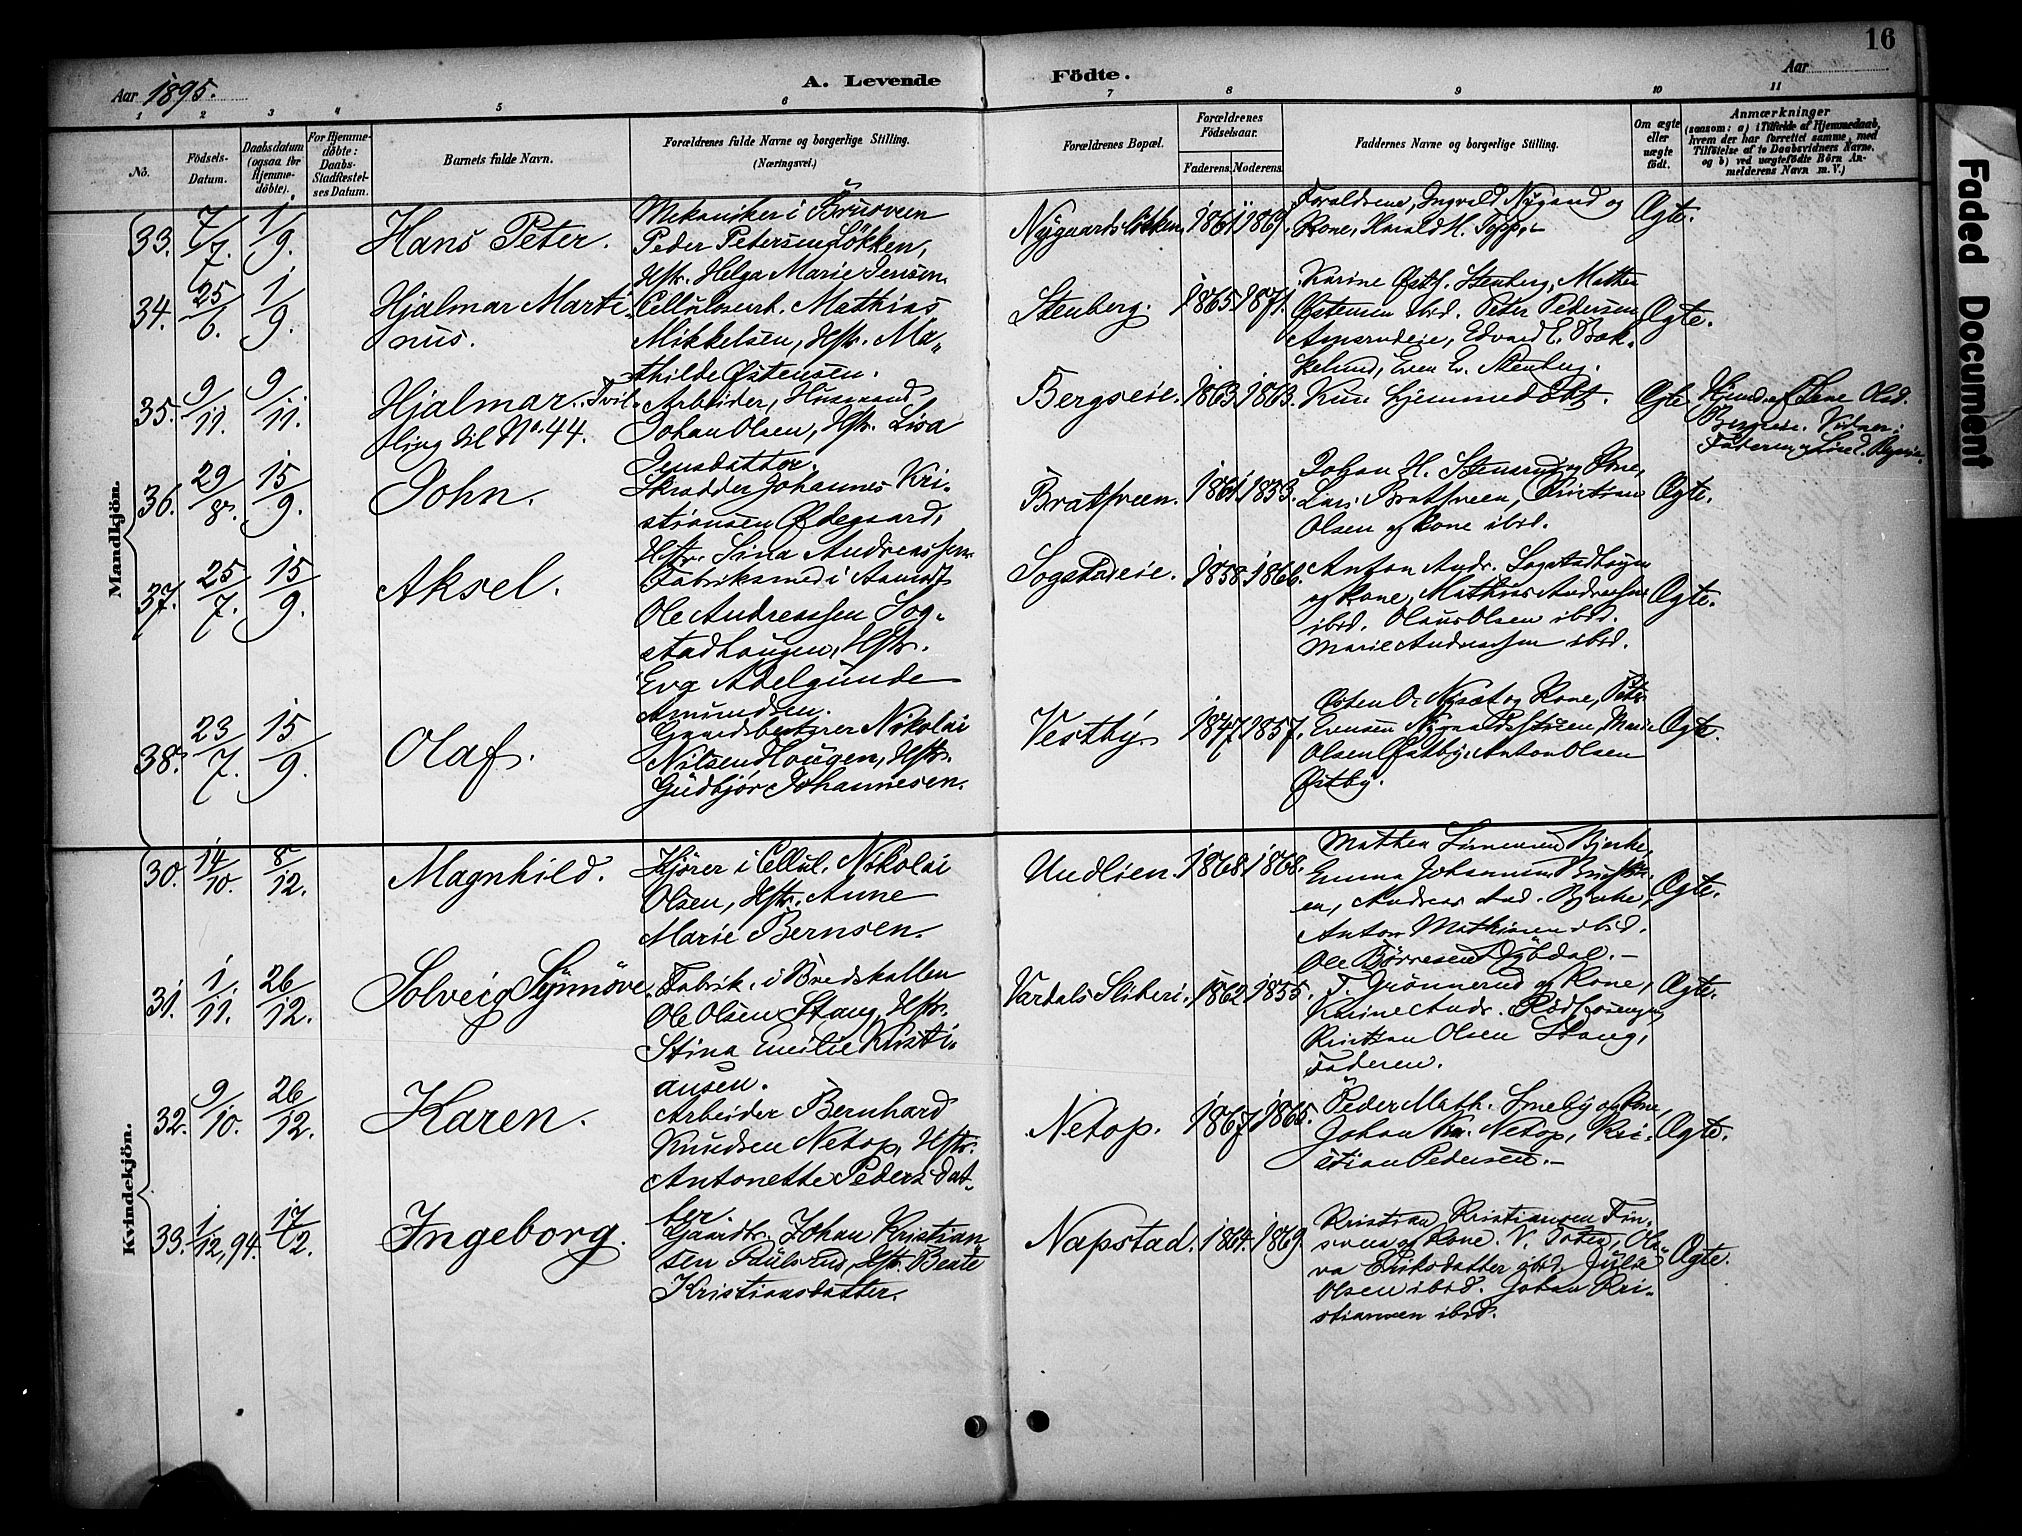 16
Aar 1895.
A. Levende
Födte.
Aar
1
2
3
4
5
6
7
8
9
10
11
No.
Födsels-
Datum.
Daabsdatum
(ogsaa for
Hjemme-
døbte).
For Hjemme-
døbte:
Daabs-
Stadfæstel-
ses Datum.
Barnets fulde Navn.
Forældrenes fulde Navne og borgerlige Stilling.
(Næringsvei.)
Forældrenes Bopæl.
Forældrenes
Födselsaar.
Faderens.
Moderens.
Faddernes Navne og borgerlige Stilling.
Om ægte
eller
uægte
født.
Anmærkninger
(saasom: a) i Tilfælde af Hjemmedaab,
hvem der har forrettet samme, med
Tilföielse af to Daabsvidners Navne,
og b) ved uægtefödte Börn An-
melderens Navn m. V.)
Faded Document
Mandkjön.
33.
7/7.
1/9.
Hans Peter.
Mekaniker i Brusveen
Peder Petersen Løkken,
Hstr. Helga Marie Jensen.
Nygaardsløkken.
1861
1869.
Forældrene, Ingvald Nygaard og
Kone, Harald H. Topp.
Ægte.
34.
25/6.
1/9.
Hjalmar Marti
nus.
Cellulosearb. Mathias
Mikkelsen, Hstr. Ma„
thilde Østensen.
Stenberg.
1865
1871.
Karine Østh. Stenberg, Mathea
Østensen ibid. Peter Pedersen
Amsrudeie, Edvard E. Bak„
kelund, Even E. Stenberg.
Ægte.
35.
9/11.
9/11.
Hjalmar. Tvil„
ling til No. 44.
Arbeider, Husmand
Johan Olsen, Hstr. Lisa
Jensdatter.
Bergseie.
1863.
1863.
Kun hjemmedøbt.
Ægte
Hjemd. af Lene Olsd.
Bergseie. Vidner:
Faderen og
36.
29/8.
15/9.
John.
Skrædder Johannes Kri-
stiansen Ødegaard,
Hstr. Sina Andreassen.
Bratsveen.
1861.
1853.
Johan H. Stensrud og Kone,
Lars Bratsveen, Kristian
Olsen og Kone ibid.
Ægte.
37.
25/7.
15/9.
Aksel.
Fabriksmed i Aamodt
Ole Andreassen Sog„
stadhaugen, Hstr.
Eva Adelgunde
Amundsen.
Sogstadeie.
1858.
1866.
Anton Andr. Sogstadhaugen
og Kone, Mathias Andreassen
ibid. Olaus Olsen ibid.
Marie Andreassen ibid.
Ægte.
38.
23/7.
15/9.
Olaf.
Gaardsbestyrer Nikolai
Nilsen Haugen, Hstr.
Gudbjør Johannesen.
Vestby.
1847.
1857.
Østen O. Nysæt og Kone, Peter
Evensen Marie
Olsen Østby, Anton Olsen
Østby.
Ægte.
Kvindekjön.
30.
14/10.
8/12.
Magnhild.
Kjører i Cellul. Nikolai
Olsen, Hstr. Anne
Marie Bernsen.
Undlien.
1868.
1868.
Mathea Simensen Bjerke,
Emma Johannesen Brusve„
en, Andreas And. Bjerke,
Anton Mathisen ibid.
Ole Børresen Dybdal.
Ægte.
31.
1/11.
26/12.
Solveig Synnøve.
Fabrik. i Bredskallen
Ole Olsen Stang, Hstr.
Stina Emilie Kristi„
ansen.
Vardals Sliberi.
1862
1855.
T. Grønnerud og Kone,
Karine Andr. Rødhaugen,
Kristian Olsen Stang,
Faderen.
Ægte.
32.
9/10.
26/12.
Karen.
Arbeider Bernhard
Knudsen Netop, Hstr.
Antonette Pedersdat„
ter.
Netop.
1867.
1865.
Peder Math. Smeby og Kone,
Johan Kn. Netop, Kri„
stian Pedersen.
Ægte.
33.
1/12,94.
17/2.
Ingeborg.
Gaardbr. Johan Kristian
sen Paulsrud, Hstr. Beate
Kristiansdatter.
Napstad.
1864.
1869
Kristian Kristiansen Fin„
sveen og Kone. V. Toten, Ola„
va Eriksdatter ibid. Julie
Olsen ibid. Johan Kri„
stiansen ibid.
Ægte.